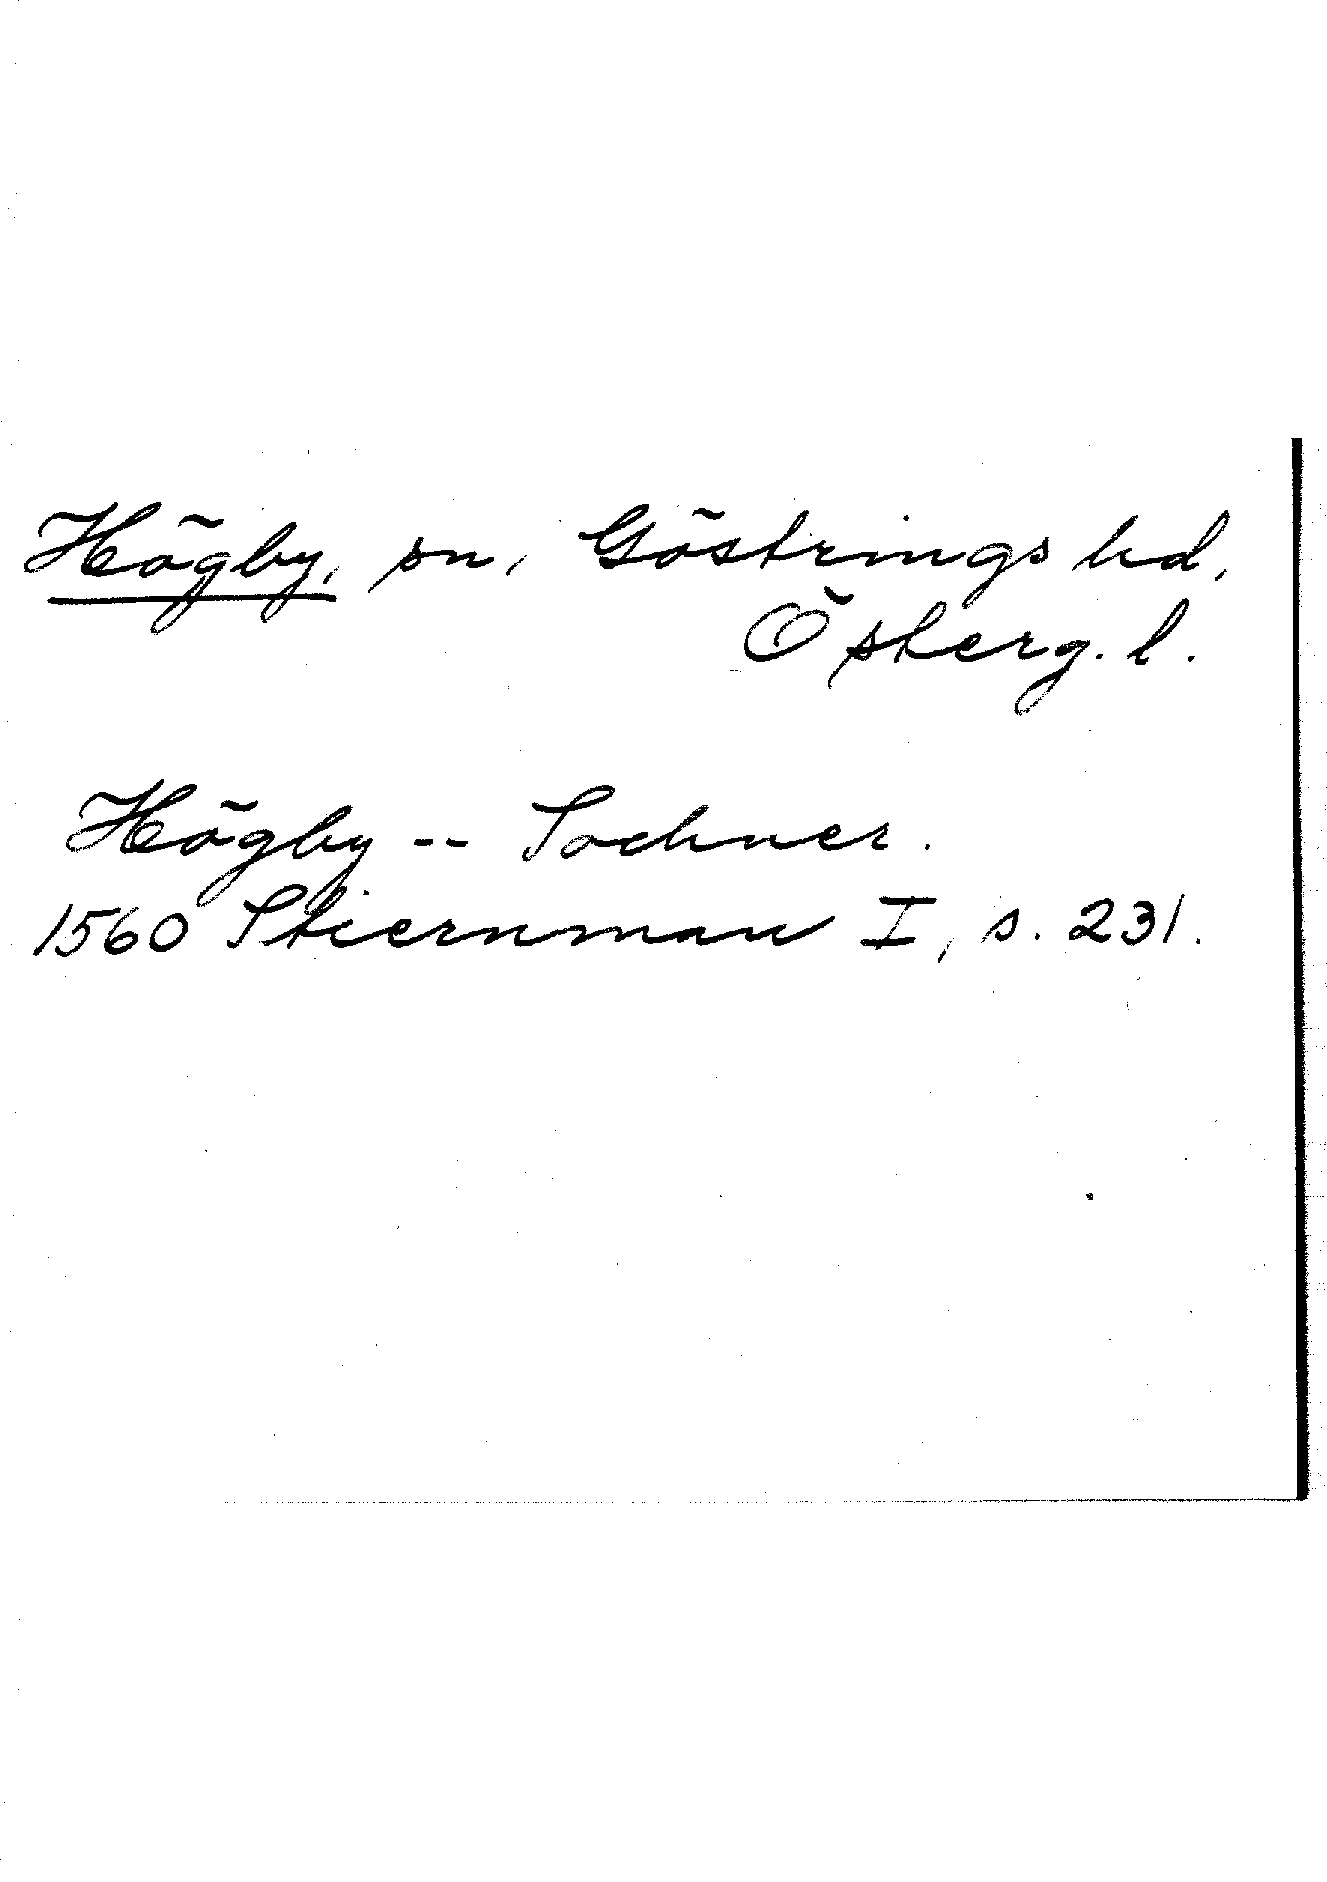 Högby, sn, Göstrings hd,
Österg. l.
Högby -- Sochner.
1560 Stiernman I, s. 231.